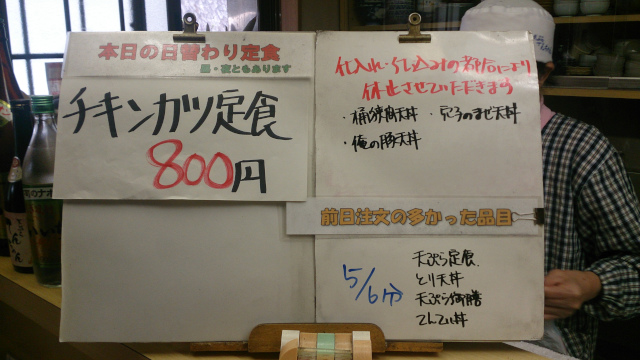 本日の日替わり定食
昼・夜ともあります
チキンカツ定食
800円
仕入れ・仕込みの都合により
休止させていただきます
・桶狭間天丼 ・穴子のまぜ天丼
・俺の豚天丼
前日注文の多かった品目
5/6分
天ぷら定食
とり天丼
天ぷら御膳